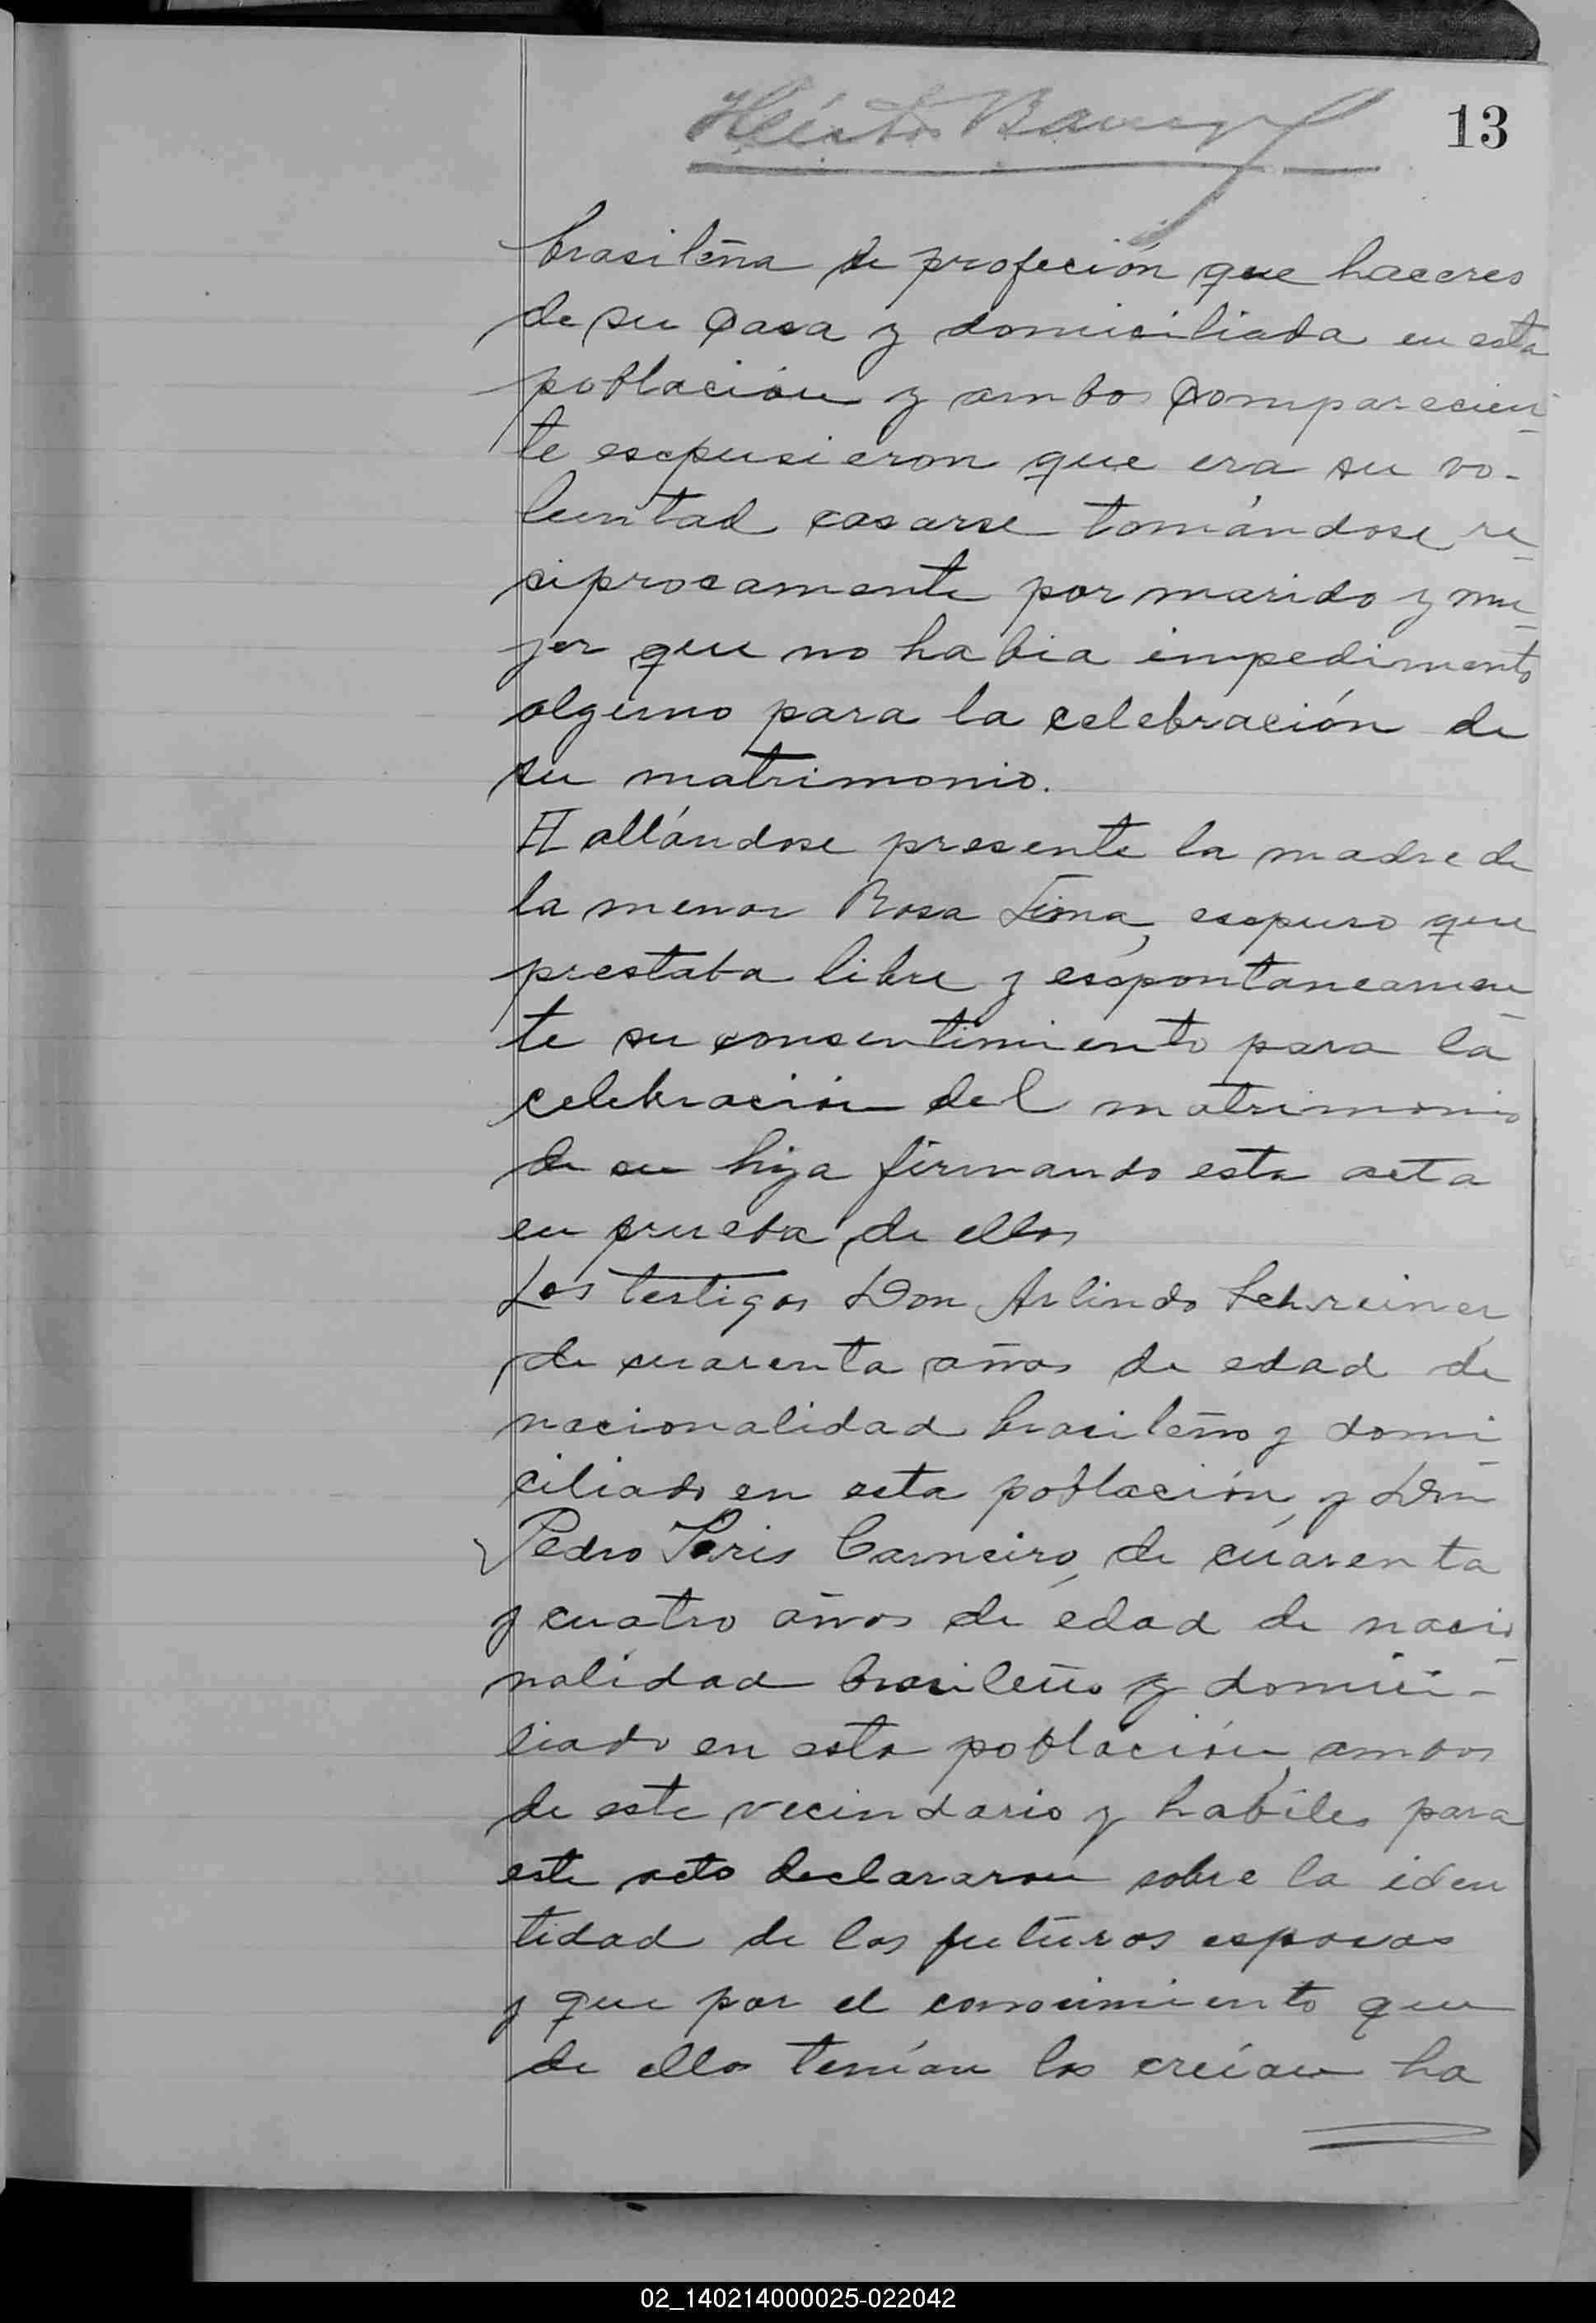 13
Héctor
brasileña de profeción que haceres
de su casa y domiciliada en esta
población y ambos comparecien-
te escpusieron que era su vo-
luntad casarse tomándose re-
ciprocamente por marido y mu-
jer que no habia impedimento
alguno para la celebración de
su matrimonio.
Hallándose presente la madre de
la menor Rosa Lima, escpuso que
prestaba libre y escpontaneamen-
te su consentimiento para la
celebración del matrimonio
de su hija firmando esta acta
en prueba de ellos
Los testigos Don Arlindo Schreiner,
de cuarenta años de edad de
nacionalidad brasileño y domi-
ciliado en esta población, y Don
Pedro Carneiro, de cuarenta
y cuatro años de edad de nacio-
nalidad brasileño y domici-
liado en esta población, ambos
de este vecindario y habiles para
este acto declararon sobre la iden
tidad de los futuros esposos
y que por el conocimiento que
de ellos tenían los creían ha
02_140214000025-022042